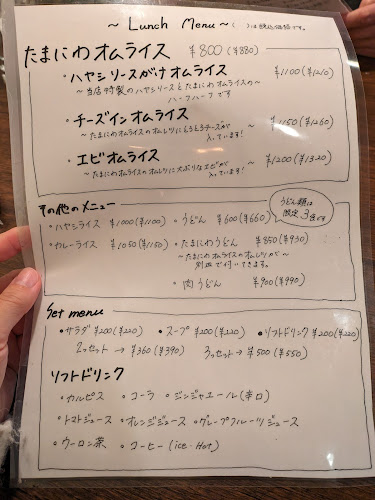 ～ Lunch Menu ～ ( )は税込価格です。
たまにわオムライス ¥800(¥880)
・ハヤシソースがけオムライス ¥1100(¥1210)
～当店特製のハヤシソースとたまにわオムライスの～
ハーフハーフです
・チーズインオムライス ～ ¥1150(¥1260)
～たまにわオムライスのオムレツにとろとろチーズが
入っています!
・エビオムライス ～ ¥1200(¥1320)
～たまにわオムライスのオムレツに大ぶりなエビが
入っています!
その他のメニュー
うどん類は
限定3食です
・ハヤシライス ¥1000(¥1100) ・うどん ¥600(¥660)
・カレーライス ¥1050(¥1150) ・たまにわうどん ¥850(¥930)
～たまにわオムライスのオムレツが～
別皿で付いてきます。
・肉うどん ¥900(¥990)
Set menu
・サラダ ¥200(¥220) ・スープ ¥200(¥220) ・ソフトドリンク ¥200(¥220)
2つセット → ¥360(¥390) 3つセット → ¥500(¥550)
ソフトドリンク
・カルピス ・コーラ ・ジンジャエール(辛口)
・トマトジュース ・オレンジジュース ・グレープフルーツジュース
・ウーロン茶 ・コーヒー(ice・Hot)